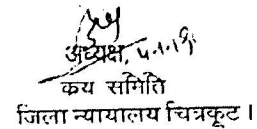 अध्यक्ष,
कय समिति
जिला न्यायालय चित्रकूट।